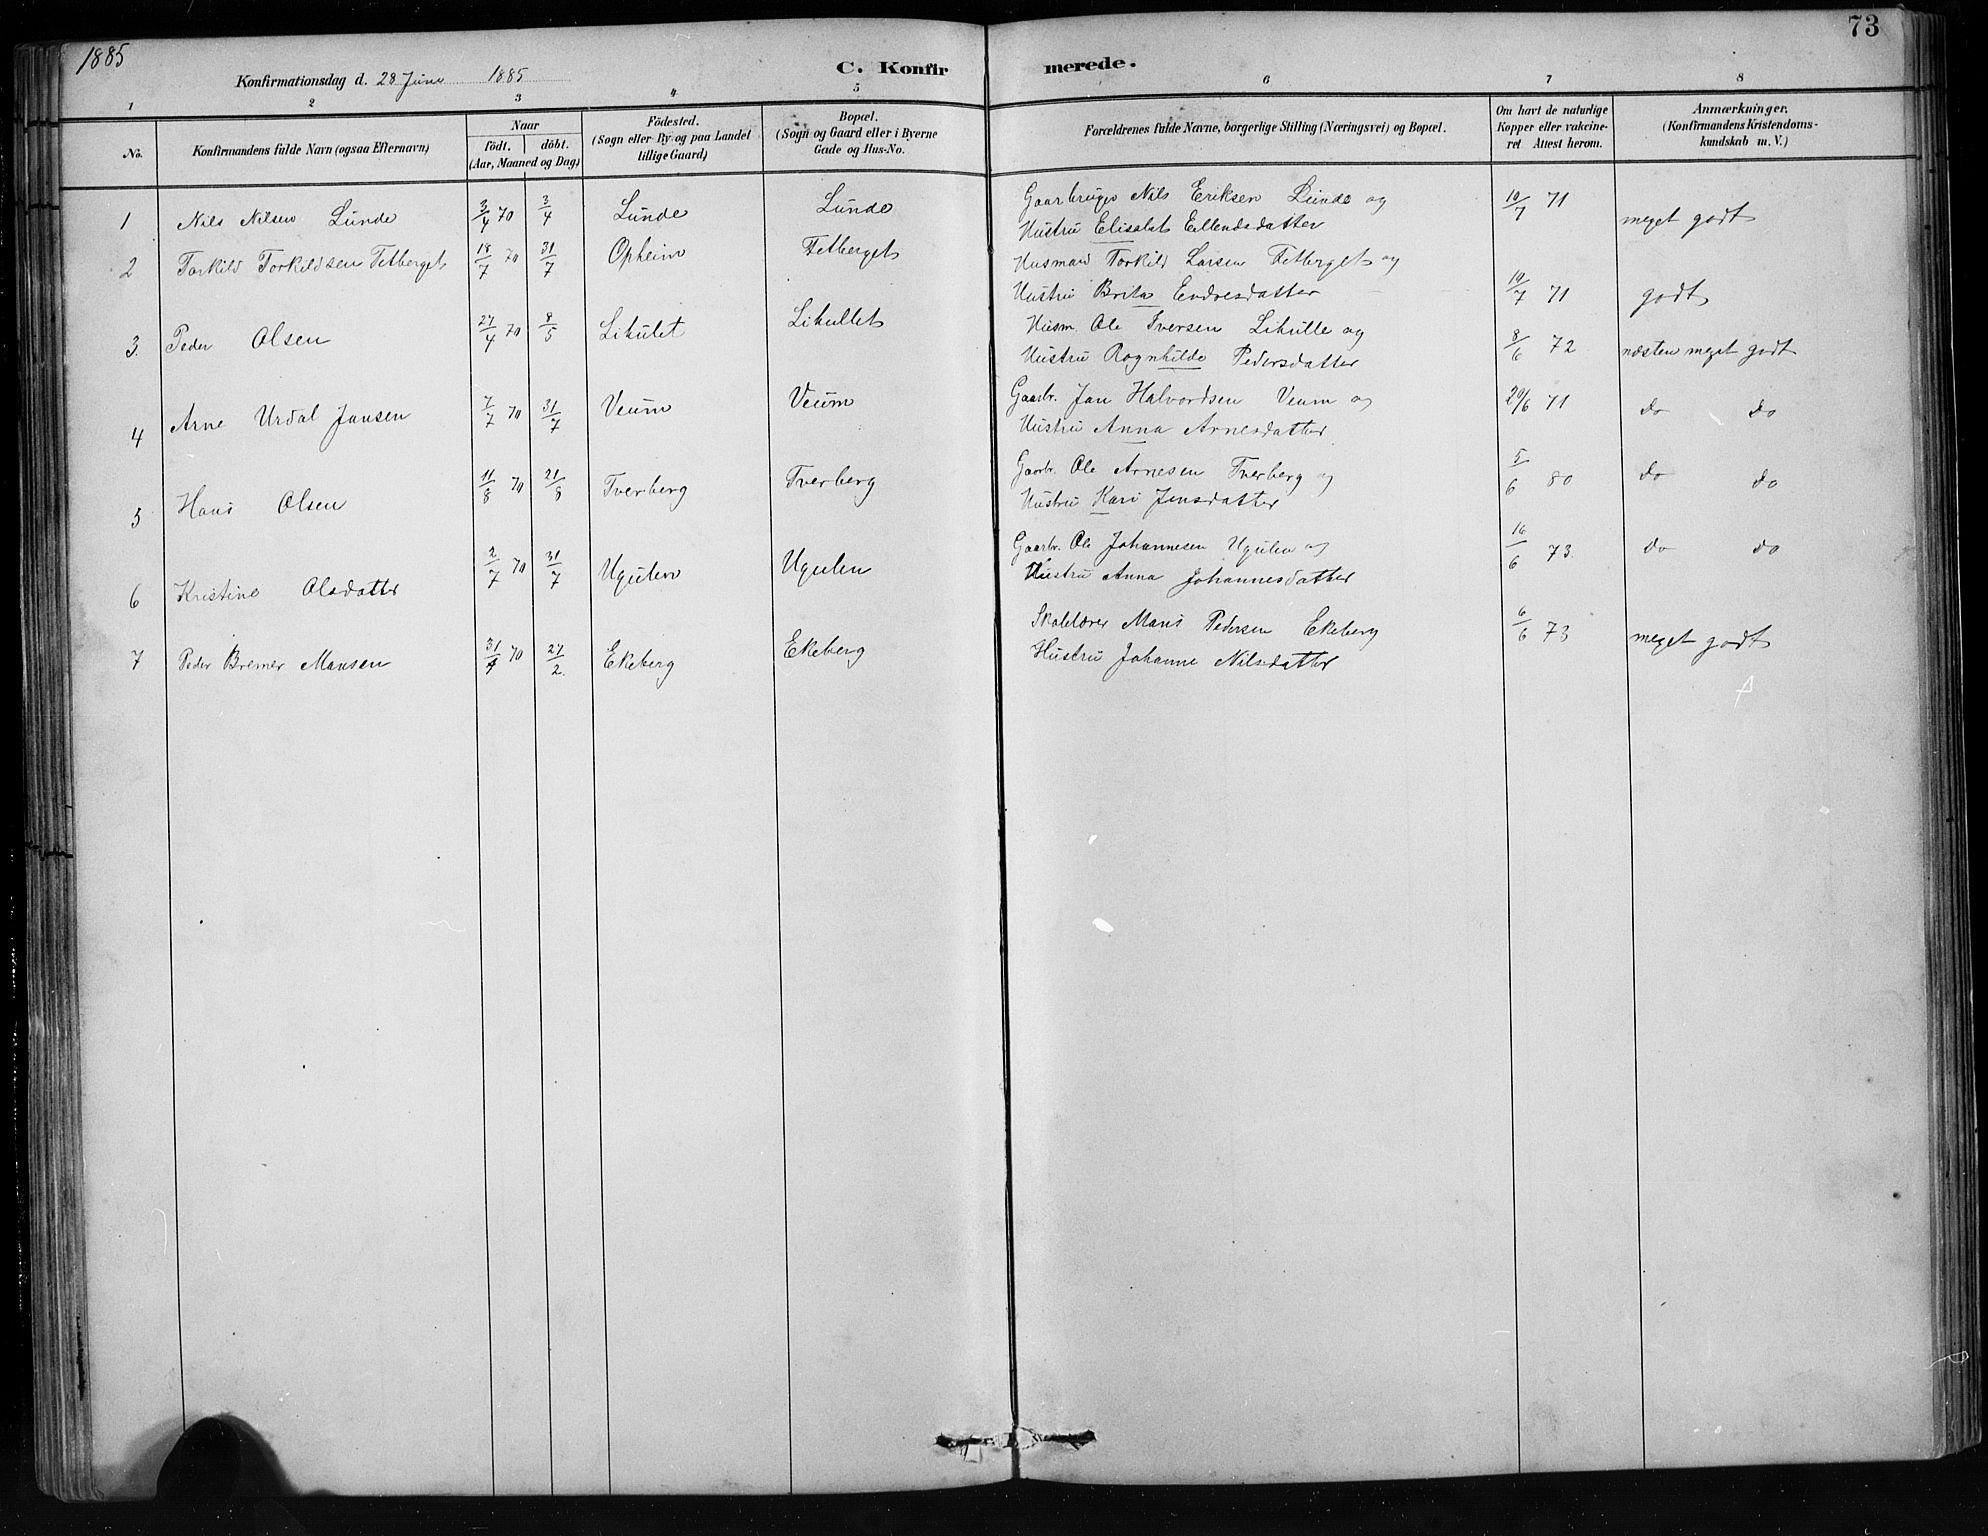 1885
73
Konfirmationsdag d. 28 Juni 1885
C. Konfirmerede.
1 2 3 4 5 6 7 8
No.
Konfirmandens fulde Navn (ogsaa Efternavn)
Naar
födt. döbt.
(Aar, Maaned og Dag)
Födested.
(Sogn eller By og paa Landet
tillige Gaard)
Bopæl.
(Sogn og Gaard eller i Byerne
Gade og Hus-No.
Forældrenes fulde Navne, borgerlige Stilling (Næringsvei) og Bopæl.
Om havt de naturlige
Kopper eller vakcine-
ret Attest herom.
Anmærkninger.
(Konfirmandens Kristendoms-
kundskab m. V.)
1 Nils Nilsen Lunde 3/4 70 3/4 Lunde Lunde Gaarbruger Nils Eriksen Lunde og 10/7 71 meget godt
Hustru Elisabet Ellendsdatter
2 Torkild Torkildsen Fetberget 18/7 70 31/7 Opheim Fetberget Husmand Torkild Larsen Fetberget og
Hustru Brita Endresdatter 10/7 71 godt
3. Peder Olsen 27/4 70 8/5 Likulet Likullet Husm. Ole Iversen Likulle og
Hustru Rognhilde Pedersdatter 8/6 72 næsten meget godt
4 Arne Urdal Jansen 7/7 70 31/7 Veum Veum Gaarbr. Jan Halvordsen Veum og 20/6 71 do do
Hustru Anna Arnesdatter
5 Hans Olsen 11/8 70 21/8 Tverberg Tverberg Gaarbr. Ole Arnesen Tverberg og 5/6 80 do do
Hustru Kari Jensdatter
6 Kristine Olsdatter 2/7 70 31/7 Ugulen Ugulen Gaarbr. Ole Johannesen Ugulen og 16/6 73. do do
Hustru Anna Johannesdatter
7 Peder Bremer Mansen 31/1 70 27/2. Ekeberg Ekeberg Skolelærer Mans Pedersen Ekeberg 6/6 73 meget godt
Hustru Johanne Nilsdatter